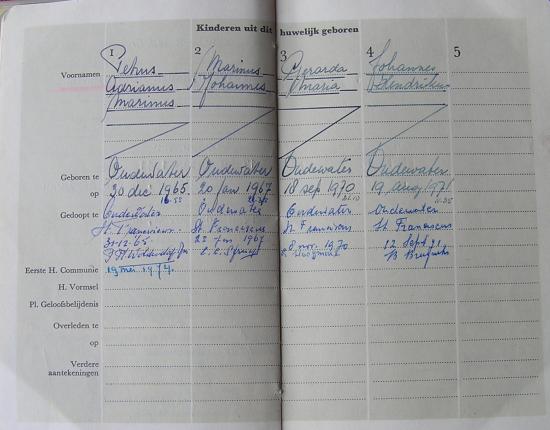 Kinderen uit dit huwelijk geboren
1 2 3 4 5
Voornamen Petrus Marinus Gerarda Johannes
Adrianus Johannes Maria Hendrikus
Marinus
Geboren te Oudewater Oudewater Oudewater Oudewater
op 30 dec 1965 20 jan 1967 18 sep 1970 19 aug 1971
Gedoopt te Oudewater Oudewater Oudewater Oudewater
St. Franciscus St. Franciscus St. Franciscus St. Franciscus
31-12-'65 22 jan 1967 8 nov. 1970 12 Sept 71
Eerste H. Communie 19 mei 1974.
H. Vormsel
Pl. Geloofsbelijdenis
Overleden te
op
Verdere
aantekeningen